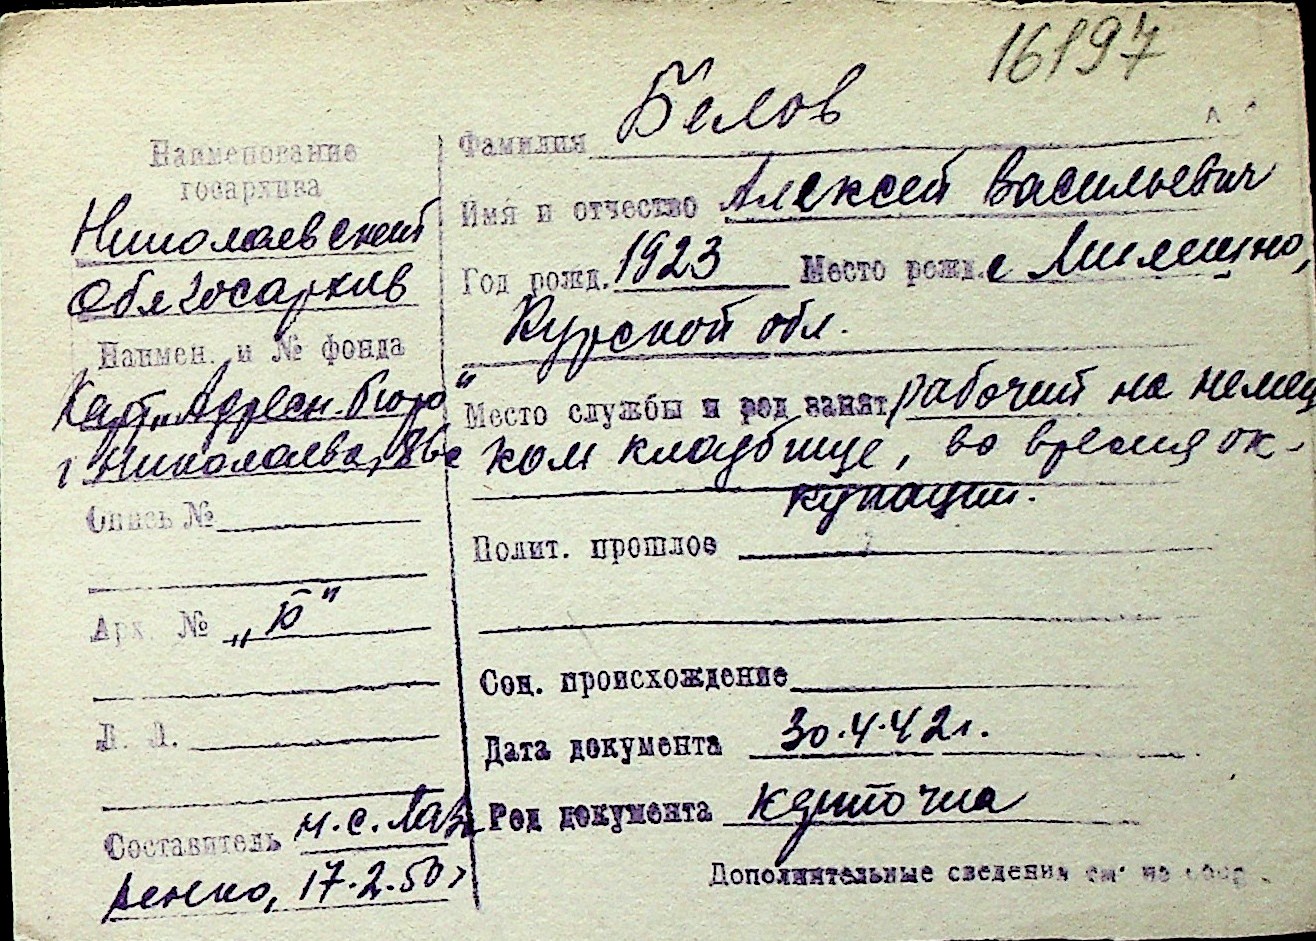 16197
Наименование
госархива
Николаевский
Облгосархив
Наимен. и № фонда
Карт. „Адресн. бюро"
г Николаева,
Опись №
Арх. № „Б"
Л. Л.
Составитель Н. С. Лав
ренко, 17.2.50г
Фамилия Белов
Имя и отчество Алексей Васильевич
Год рожд. 1923 Место рожд. с
Курской обл.
Место службы и род занят рабочий на немец
ком кладбище, во время ок-
купации.
Полит. прошлое
Соц. происхождение
Дата документа 30.4.42г.
Род документа карточка
Дополнительные сведения см. на обор.